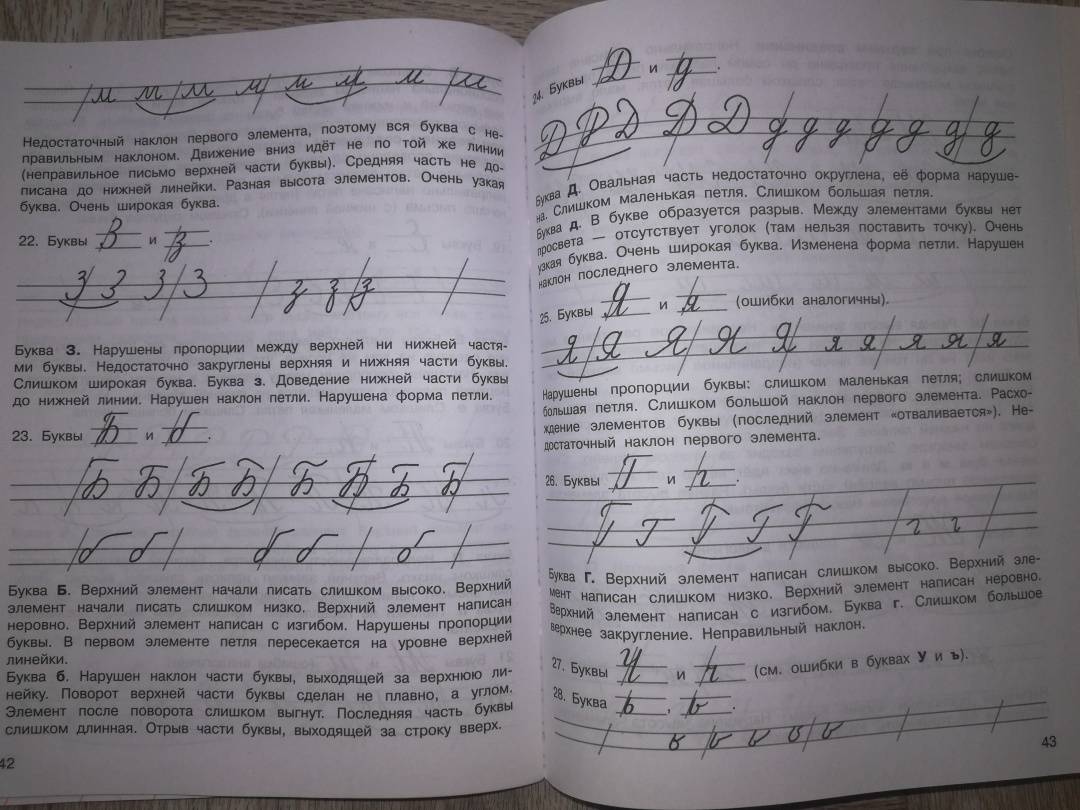 м м м м м м м м
Недостаточный наклон первого элемента, поэтому вся буква с не-
правильным наклоном. Движение вниз идёт не по той же линии
(неправильное письмо верхней части буквы). Средняя часть не до-
писана до нижней линейки. Разная высота элементов. Очень узкая
буква. Очень широкая буква.
22. Буквы З и з.
З З З З з з з
Буква З. Нарушены пропорции между верхней ни нижней частя-
ми буквы. Недостаточно закруглены верхняя и нижняя части буквы.
Слишком широкая буква. Буква з. Доведение нижней части буквы
до нижней линии. Нарушен наклон петли. Нарушена форма петли.
23. Буквы Б и б.
Б Б Б Б Б Б Б Б
б б б б б
Буква Б. Верхний элемент начали писать слишком высоко. Верхний
элемент начали писать слишком низко. Верхний элемент написан
неровно. Верхний элемент написан с изгибом. Нарушены пропорции
буквы. В первом элементе петля пересекается на уровне верхней
линейки.
Буква б. Нарушен наклон части буквы, выходящей за верхнюю ли-
нейку. Поворот верхней части буквы сделан не плавно, а углом.
Элемент после поворота слишком выгнут. Последняя часть буквы
слишком длинная. Отрыв части буквы, выходящей за строку вверх.
42
24. Буквы Д и д.
Д Д Д Д Д д д д д д д д
Буква Д. Овальная часть недостаточно округлена, её форма наруше-
на. Слишком маленькая петля. Слишком большая петля.
Буква д. В букве образуется разрыв. Между элементами буквы нет
просвета — отсутствует уголок (там нельзя поставить точку). Очень
узкая буква. Очень широкая буква. Изменена форма петли. Нарушен
наклон последнего элемента.
25. Буквы Я и я (ошибки аналогичны).
Я Я Я Я Я я я я я я
Нарушены пропорции буквы: слишком маленькая петля; слишком
большая петля. Слишком большой наклон первого элемента. Расхо-
ждение элементов буквы (последний элемент «отваливается»). Не-
достаточный наклон первого элемента.
26. Буквы Г и г.
Г Г Г Г Г г г
Буква Г. Верхний элемент написан слишком высоко. Верхний эле-
мент написан слишком низко. Верхний элемент написан неровно.
Верхний элемент написан с изгибом. Буква г. Слишком большое
верхнее закругление. Неправильный наклон.
27. Буквы Ч и ч (см. ошибки в буквах У и ъ).
28. Буква ь, ь.
43